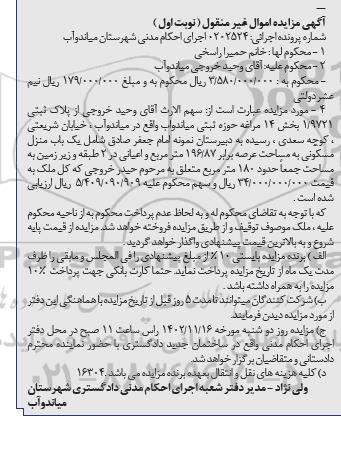 آگهی مزایده اموال غیر منقول ( نوبت اول )
شماره پرونده اجرائی: ۰۲۰۲۵۲۴ اجرای احکام مدنی شهرستان میاندوآب
۱ - محکوم لها : خانم حمیرا راسخی
۲ - محکوم علیه: آقای وحید خروجی میاندوآب
۳ - محکوم به : ۳/۵۸۰/۰۰۰/۰۰۰ ریال محکوم به و مبلغ ۱۷۹/۰۰۰/۰۰۰ ریال نیم
عشر دولتی
۴ - مورد مزایده عبارت است از: سهم الارث آقای وحید خروجی از پلاک ثبتی
۱/۹۷۲۱ بخش ۱۴ مراغه حوزه ثبتی میاندوآب واقع در میاندوآب ، خیابان شریعتی
، کوچه سعدی ، رسیده به دبیرستان نمونه امام جعفر صادق شامل یک باب منزل
مسکونی به مساحت عرصه برابر ۱۹۶/۸۷ متر مربع و اعیانی در ۲ طبقه و زیر زمین به
مساحت جمعاً حدود ۱۸۰ متر مربع متعلق به مرحوم حیدر خروجی که کل ملک به
قیمت ۳۴/۰۰۰/۰۰۰/۰۰۰ ریال و سهم محکوم علیه ۵/۴۰۹/۰۹۰/۹۰۹ ریال ارزیابی
شده است .
که با توجه به تقاضای محکوم له و به لحاظ عدم پرداخت محکوم به از ناحیه محکوم
علیه ، ملک موصوف توقیف و از طریق مزایده فروخته خواهد شد. مزایده از قیمت پایه
شروع و به بالاترین قیمت پیشنهادی واگذار خواهد گردید .
الف ) برنده مزایده بایستی ۱۰٪ از مبلغ پیشنهادی را فی المجلس و مابقی را ظرف
مدت یک ماه از تاریخ مزایده پرداخت نماید. حتما کارت بانکی جهت پرداخت ۱۰٪
مزایده را به همراه داشته باشد .
ب) شرکت کنندگان میتوانند تا مدت ۵ روز قبل از تاریخ مزایده با هماهنگی این دفتر
از مورد مزایده دیدن فرمایند.
ج) مزایده روز دو شنبه مورخه ۱۴۰۲/۱۱/۱۶ راس ساعت ۱۱ صبح در محل دفتر
اجرای احکام مدنی واقع در ساختمان جدید دادگستری با حضور نماینده محترم
دادستانی و متقاضیان برگزار خواهد شد.
د) کلیه هزینه های نقل و انتقال بعهده برنده مزایده می باشد. ۱۶۳۰۴
ولی نژاد - مدیر دفتر شعبه اجرای احکام مدنی دادگستری شهرستان
میاندوآب